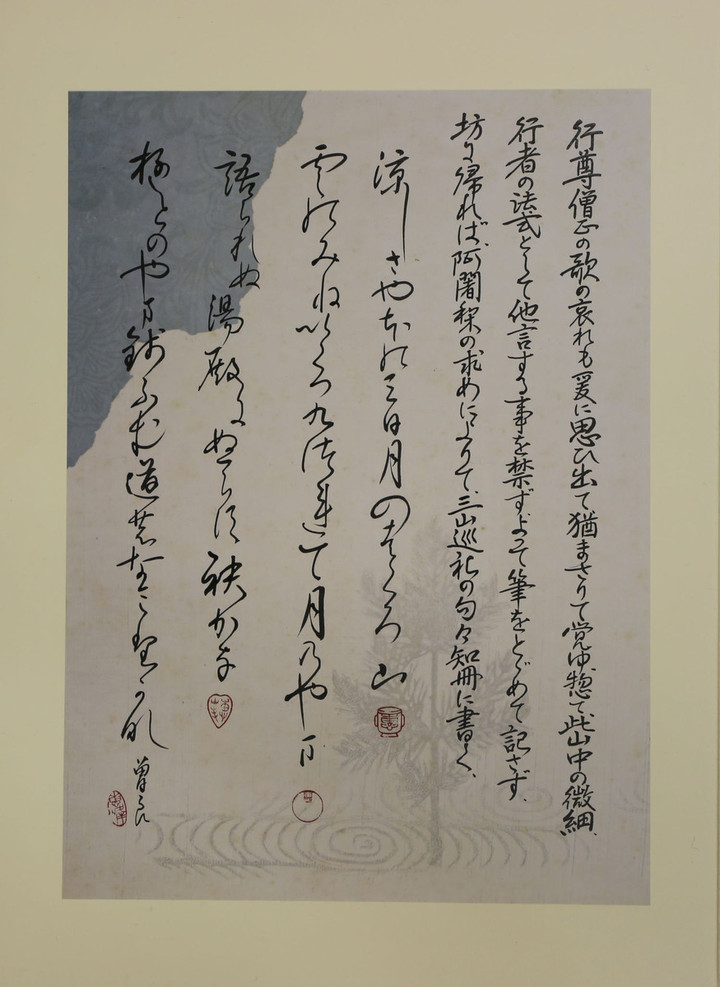 行尊僧正の歌の哀れも爰に思ひ出て猶まさりて覚ゆ惣て此山中の微細
行者の法式として他言する事を禁ずよって筆をとゞめて記さず、
坊に帰れば、阿闍梨の求めによりて、三山巡礼の句々短冊に書く、
涼しさやほの三日月のはくろ山
雲のみねいくつ九つ連て月のやま
語られぬ湯殿にぬらす袂かな
ゆとのやま銭ふむ道のなミたかな 曽良